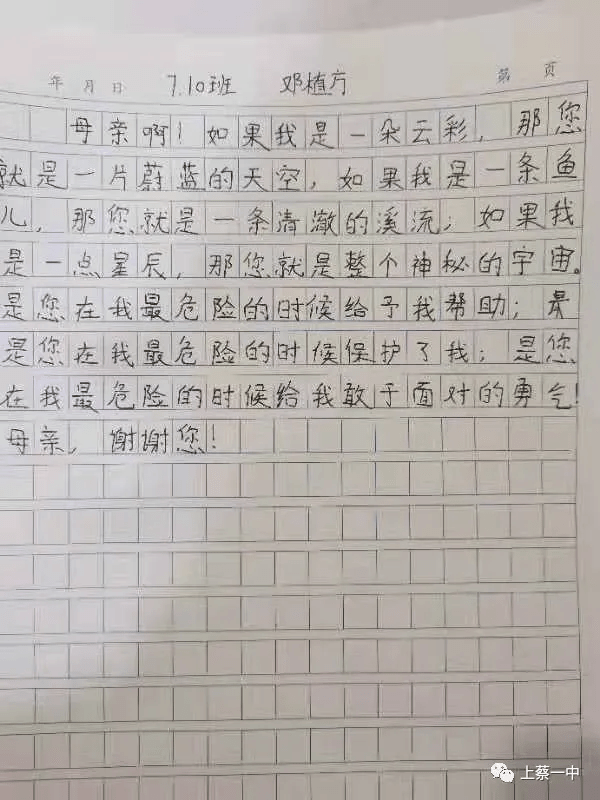 年 月 日 7.10班 邓植方 第 页
母亲啊！如果我是一朵云彩，那您
就是一片蔚蓝的天空，如果我是一条鱼
儿，那您就是一条清澈的溪流；如果我
是一点星辰，那您就是整个神秘的宇宙。
是您在我最危险的时候给予我帮助；
是您在我最危险的时候保护了我；是您
在我最危险的时候给我敢于面对的勇气！
母亲，谢谢您！
上蔡一中